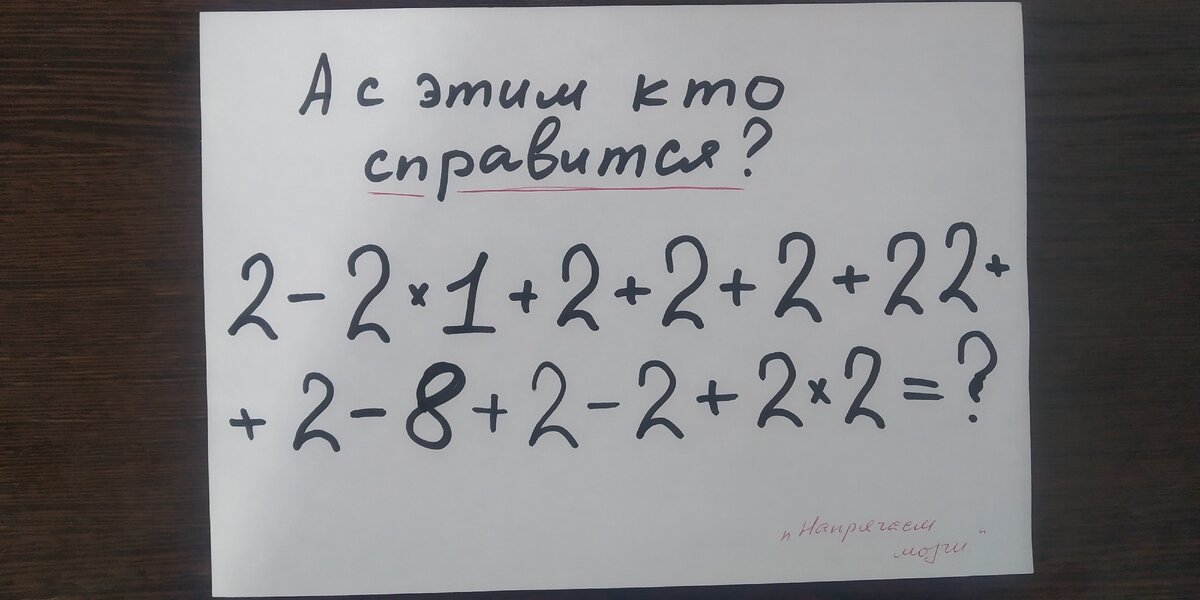 А с этим кто
справится?
2 - 2 × 1 + 2 + 2 + 2 + 22 +
+ 2 - 8 + 2 - 2 + 2 × 2 = ?
"Напрягаем
мозги"